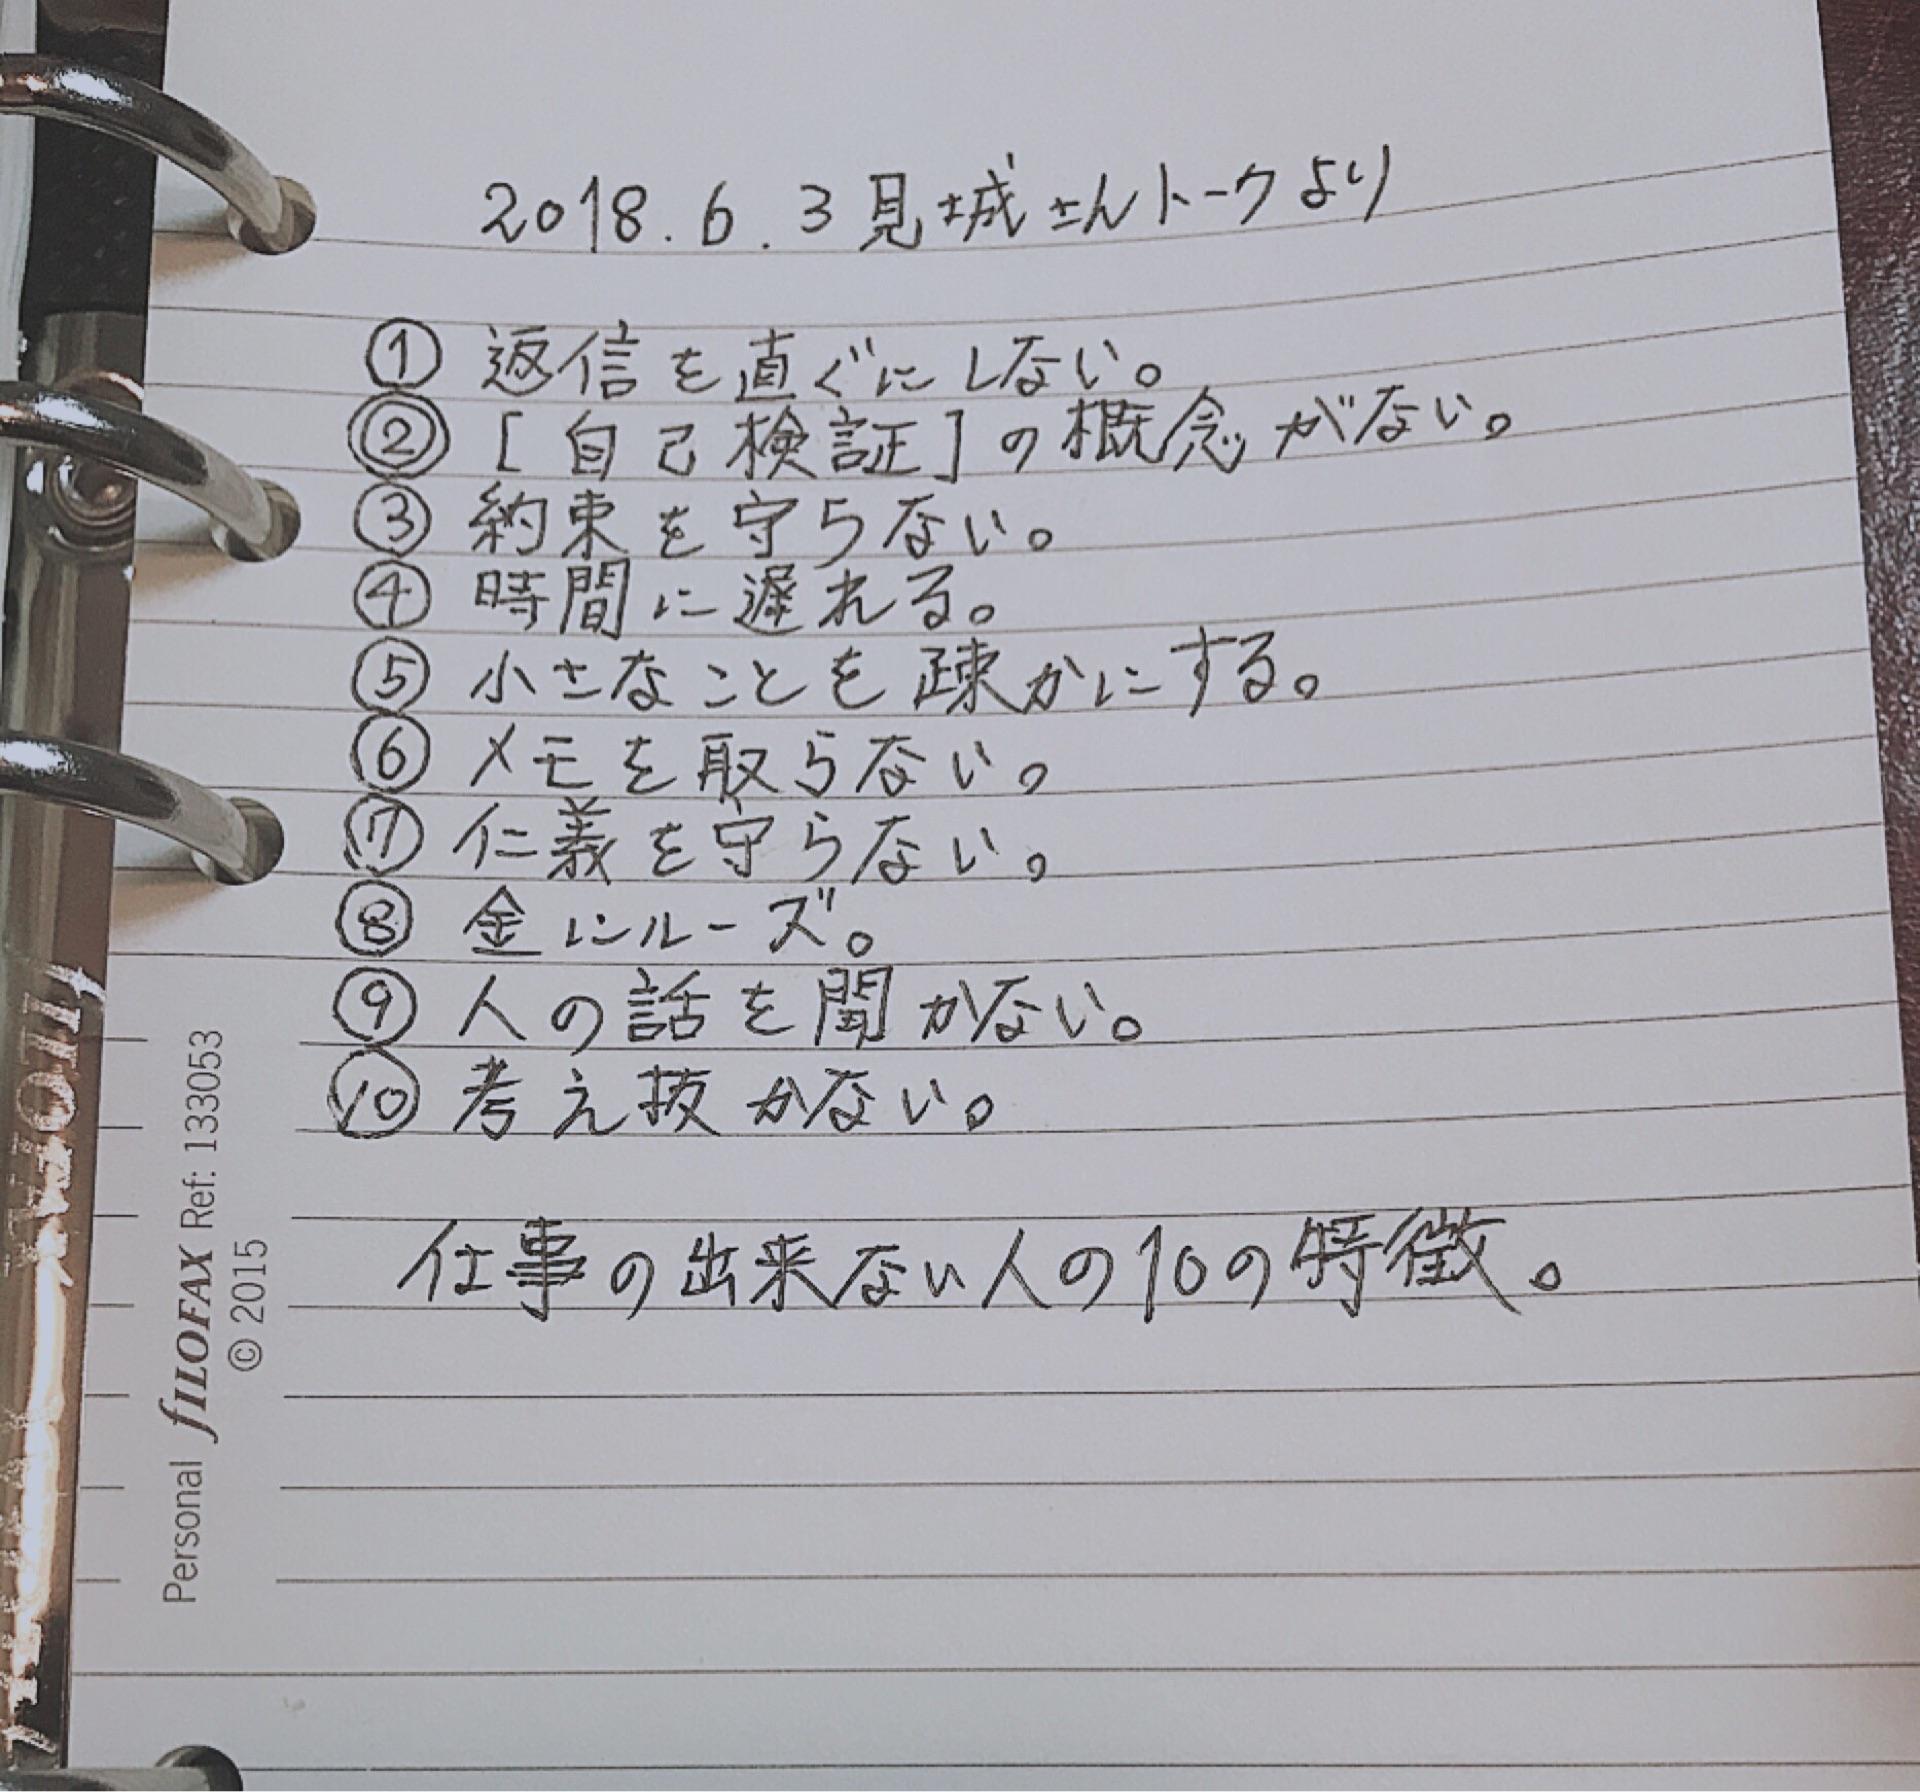 2018.6.3見城さんトークより
① 返信を直ぐにしない。
② [自己検証]の概念がない。
③ 約束を守らない。
④ 時間に遅れる。
⑤ 小さなことを疎かにする。
⑥ メモを取らない。
⑦ 仁義を守らない。
⑧ 金にルーズ。
⑨ 人の話を聞かない。
⑩ 考え抜かない。
仕事の出来ない人の10の特徴。
Personal fILOFAX Ref: 133053
© 2015